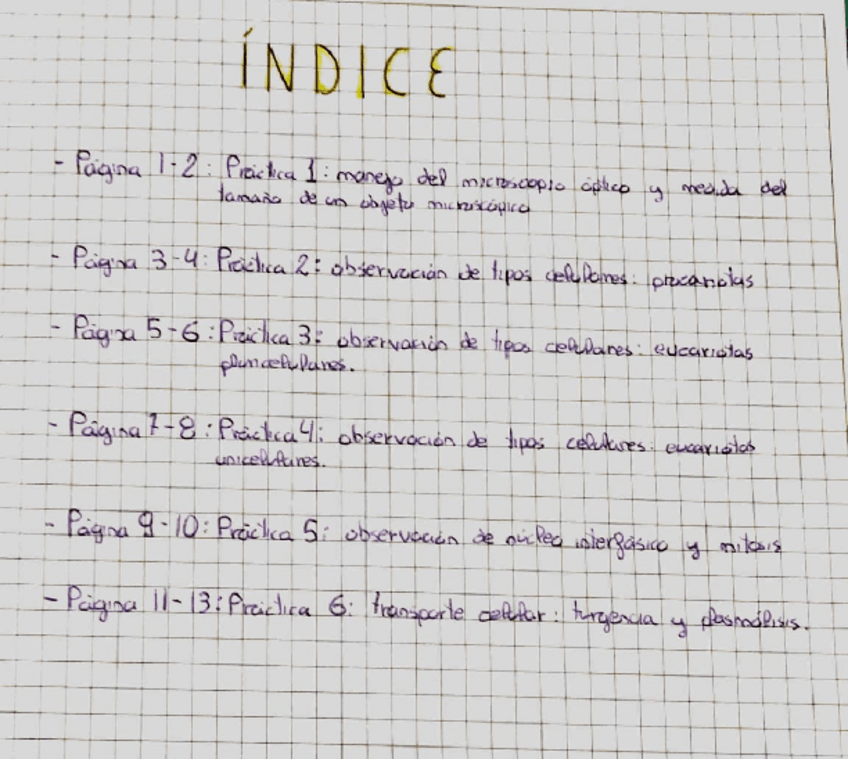 ÍNDICE
- Página 1-2: Práctica 1: manejo del microscopio óptico y medida del
tamaño de un objeto microscópico
- Página 3-4: Práctica 2: observación de tipos celulares: procariotas
- Página 5-6: Práctica 3: observación de tipos celulares: eucariotas
pluricelulares.
- Página 7-8: Práctica 4: observación de tipos celulares: eucariotas
unicelulares.
- Página 9-10: Práctica 5: observación de núcleo interfásico y mitosis
- Página 11-13: Práctica 6: transporte celular: turgencia y plasmólisis.